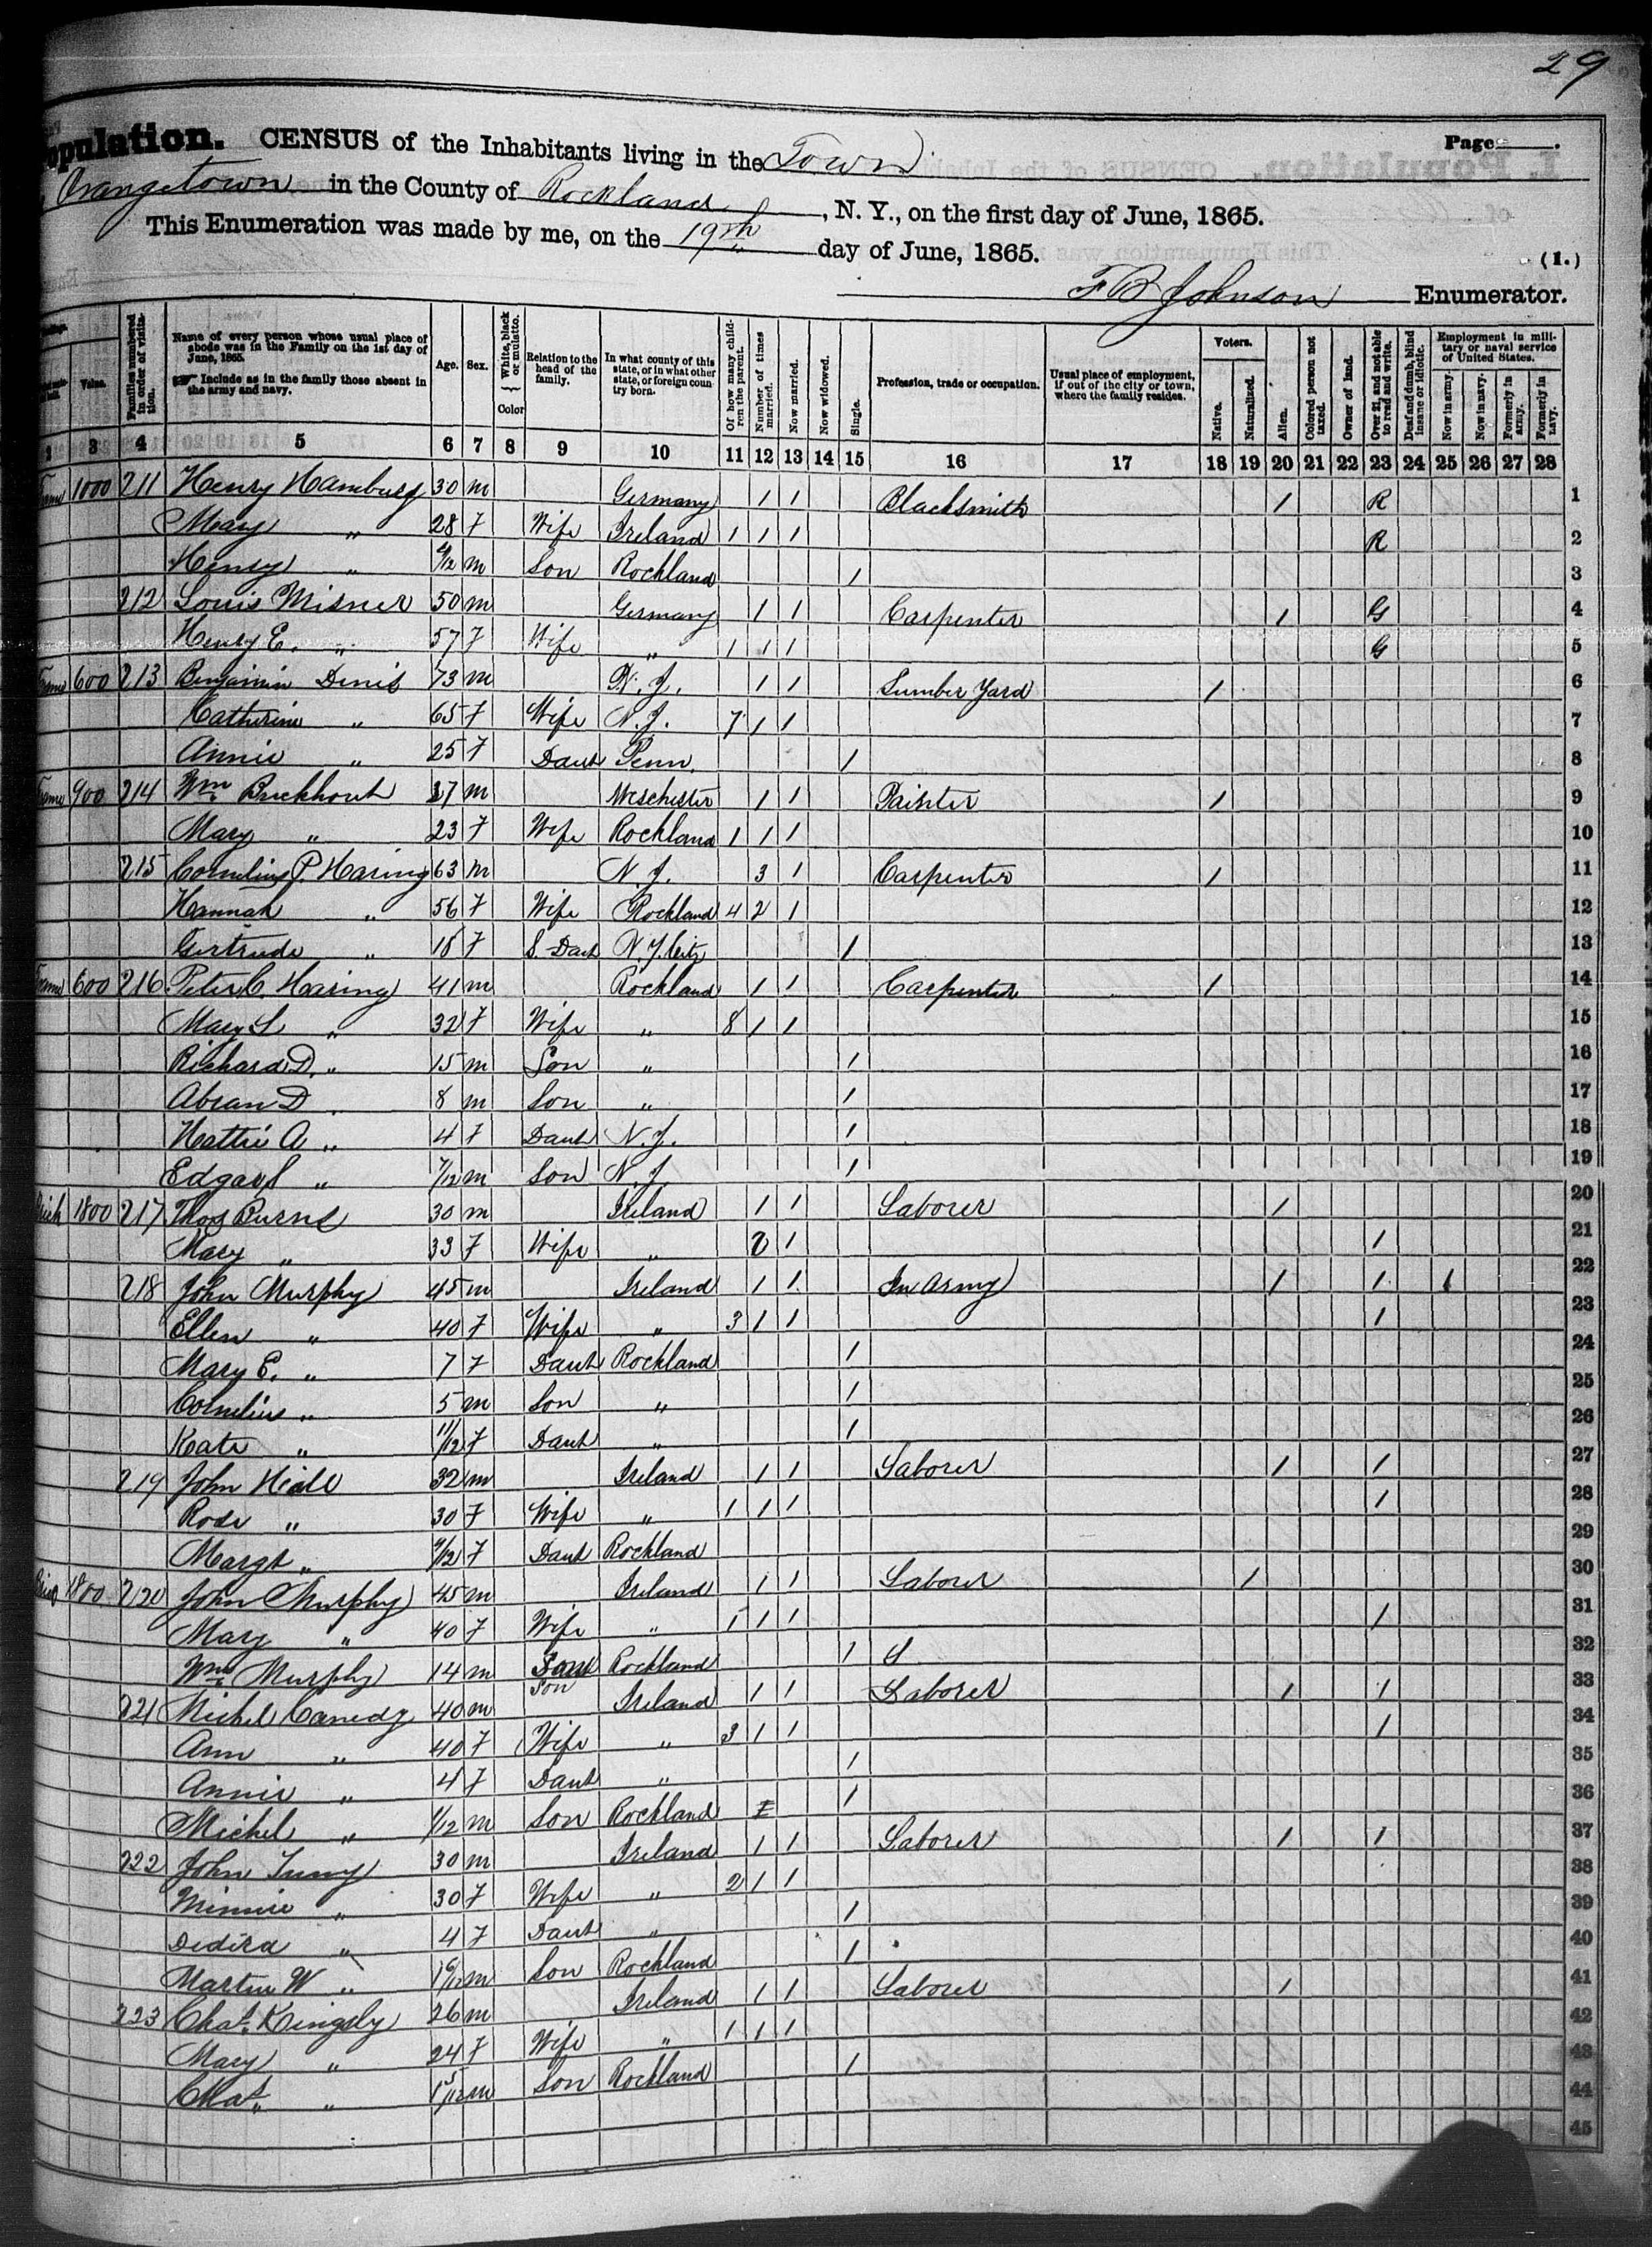 29
Population. CENSUS of the Inhabitants living in the Town Page
Orangetown in the County of Rockland, N. Y., on the first day of June, 1865.
This Enumeration was made by me, on the 19th day of June, 1865. (1.)
F B Johnson Enumerator.
Value. Families numbered in order of visitation. Name of every person whose usual place of abode was in the Family on the 1st day of June, 1865. Include as in the family those absent in the army and navy. Age. Sex. White, black or mulatto. Color Relation to the head of the family. In what county of this state, or in what other state, or foreign country born. Of how many children the parent. Number of times married. Now married. Now widowed. Single. Profession, trade or occupation. Usual place of employment, if out of the city or town, where the family resides. Voters. Native. Naturalized. Alien. Colored person not taxed. Owner of land. Over 21, and not able to read and write. Deaf and dumb, blind insane or idiotic. Employment in military or naval service of United States. Now in army. Now in navy. Formerly in army. Formerly in navy.
2 3 4 5 6 7 8 9 10 11 12 13 14 15 16 17 18 19 20 21 22 23 24 25 26 27 28
Frame 1000 211 Henry Hamburg 30 m Germany 1 1 Blacksmith 1 R 1
Mary " 28 F Wife Ireland 1 1 1 R 2
Henry " /12 m Son Rockland 1 3
212 Louis Misner 50 m Germany 1 1 Carpenter 1 G 4
Henry E. " 57 F Wife " 1 1 1 G 5
Frame 600 213 Benjamin Denis 73 m N. J. 1 1 Lumber Yard 1 6
Catherine " 65 F Wife N. J. 7 1 1 7
Annie " 25 F Daut Penn. 1 8
Frame 900 214 Wm Buckhout 27 m Weschester 1 1 Painter 1 9
Mary " 23 F Wife Rockland 1 1 1 10
215 Cornelius P. Haring 63 m N. J. 3 1 Carpenter 1 11
Hannah " 56 F Wife Rockland 4 2 1 12
Gertrude " F S. Daut N. Y. City 1 13
Frame 600 216 Peter C. Haring 41 m Rockland 1 1 Carpenter 1 14
Mary L " 32 F Wife " 8 1 1 15
Richard D. " 15 m Son " 1 16
Abram D " 8 m Son " 1 17
Hattie A " 4 F Daut N. J. 1 18
Edgar S " 7/12 m Son N. J. 1 19
Brick 1800 217 Thos Burns 30 m Ireland 1 1 Laborer 1 20
Mary " 33 F Wife " 2 1 1 21
218 John Murphy 45 m Ireland 1 1 In Army 1 1 1 22
Ellen " 40 F Wife " 3 1 1 1 23
Mary E. " 7 F Daut Rockland 1 24
Cornelius " 5 m Son " 1 25
Kate " 11/12 F Daut " 1 26
219 John 32 m Ireland 1 1 Laborer 1 1 27
Rose " 30 F Wife " 1 1 1 1 28
Margt " /12 F Daut Rockland 29
Brick 1800 220 John Murphy 45 m Ireland 1 1 Laborer 1 30
Mary " 40 F Wife " 1 1 1 1 31
Wm Murphy 14 m Son Rockland 1 32
221 Michel Canedy 40 m Ireland 1 1 Laborer 1 1 33
Ann " 40 F Wife " 3 1 1 1 34
Annie " 4 F Daut " 1 35
Michel " 1/12 m Son Rockland 1 36
222 John Tumy 30 m Ireland 1 1 Laborer 1 1 37
Minnie " 30 F Wife " 2 1 1 38
Dedira " 4 F Daut " 1 39
Martin W " m Son Rockland 1 40
223 Chas. Kingsly 26 m Ireland 1 1 Laborer 1 41
Mary " 24 F Wife " 1 1 1 42
Chas. " m Son Rockland 1 43
44
45